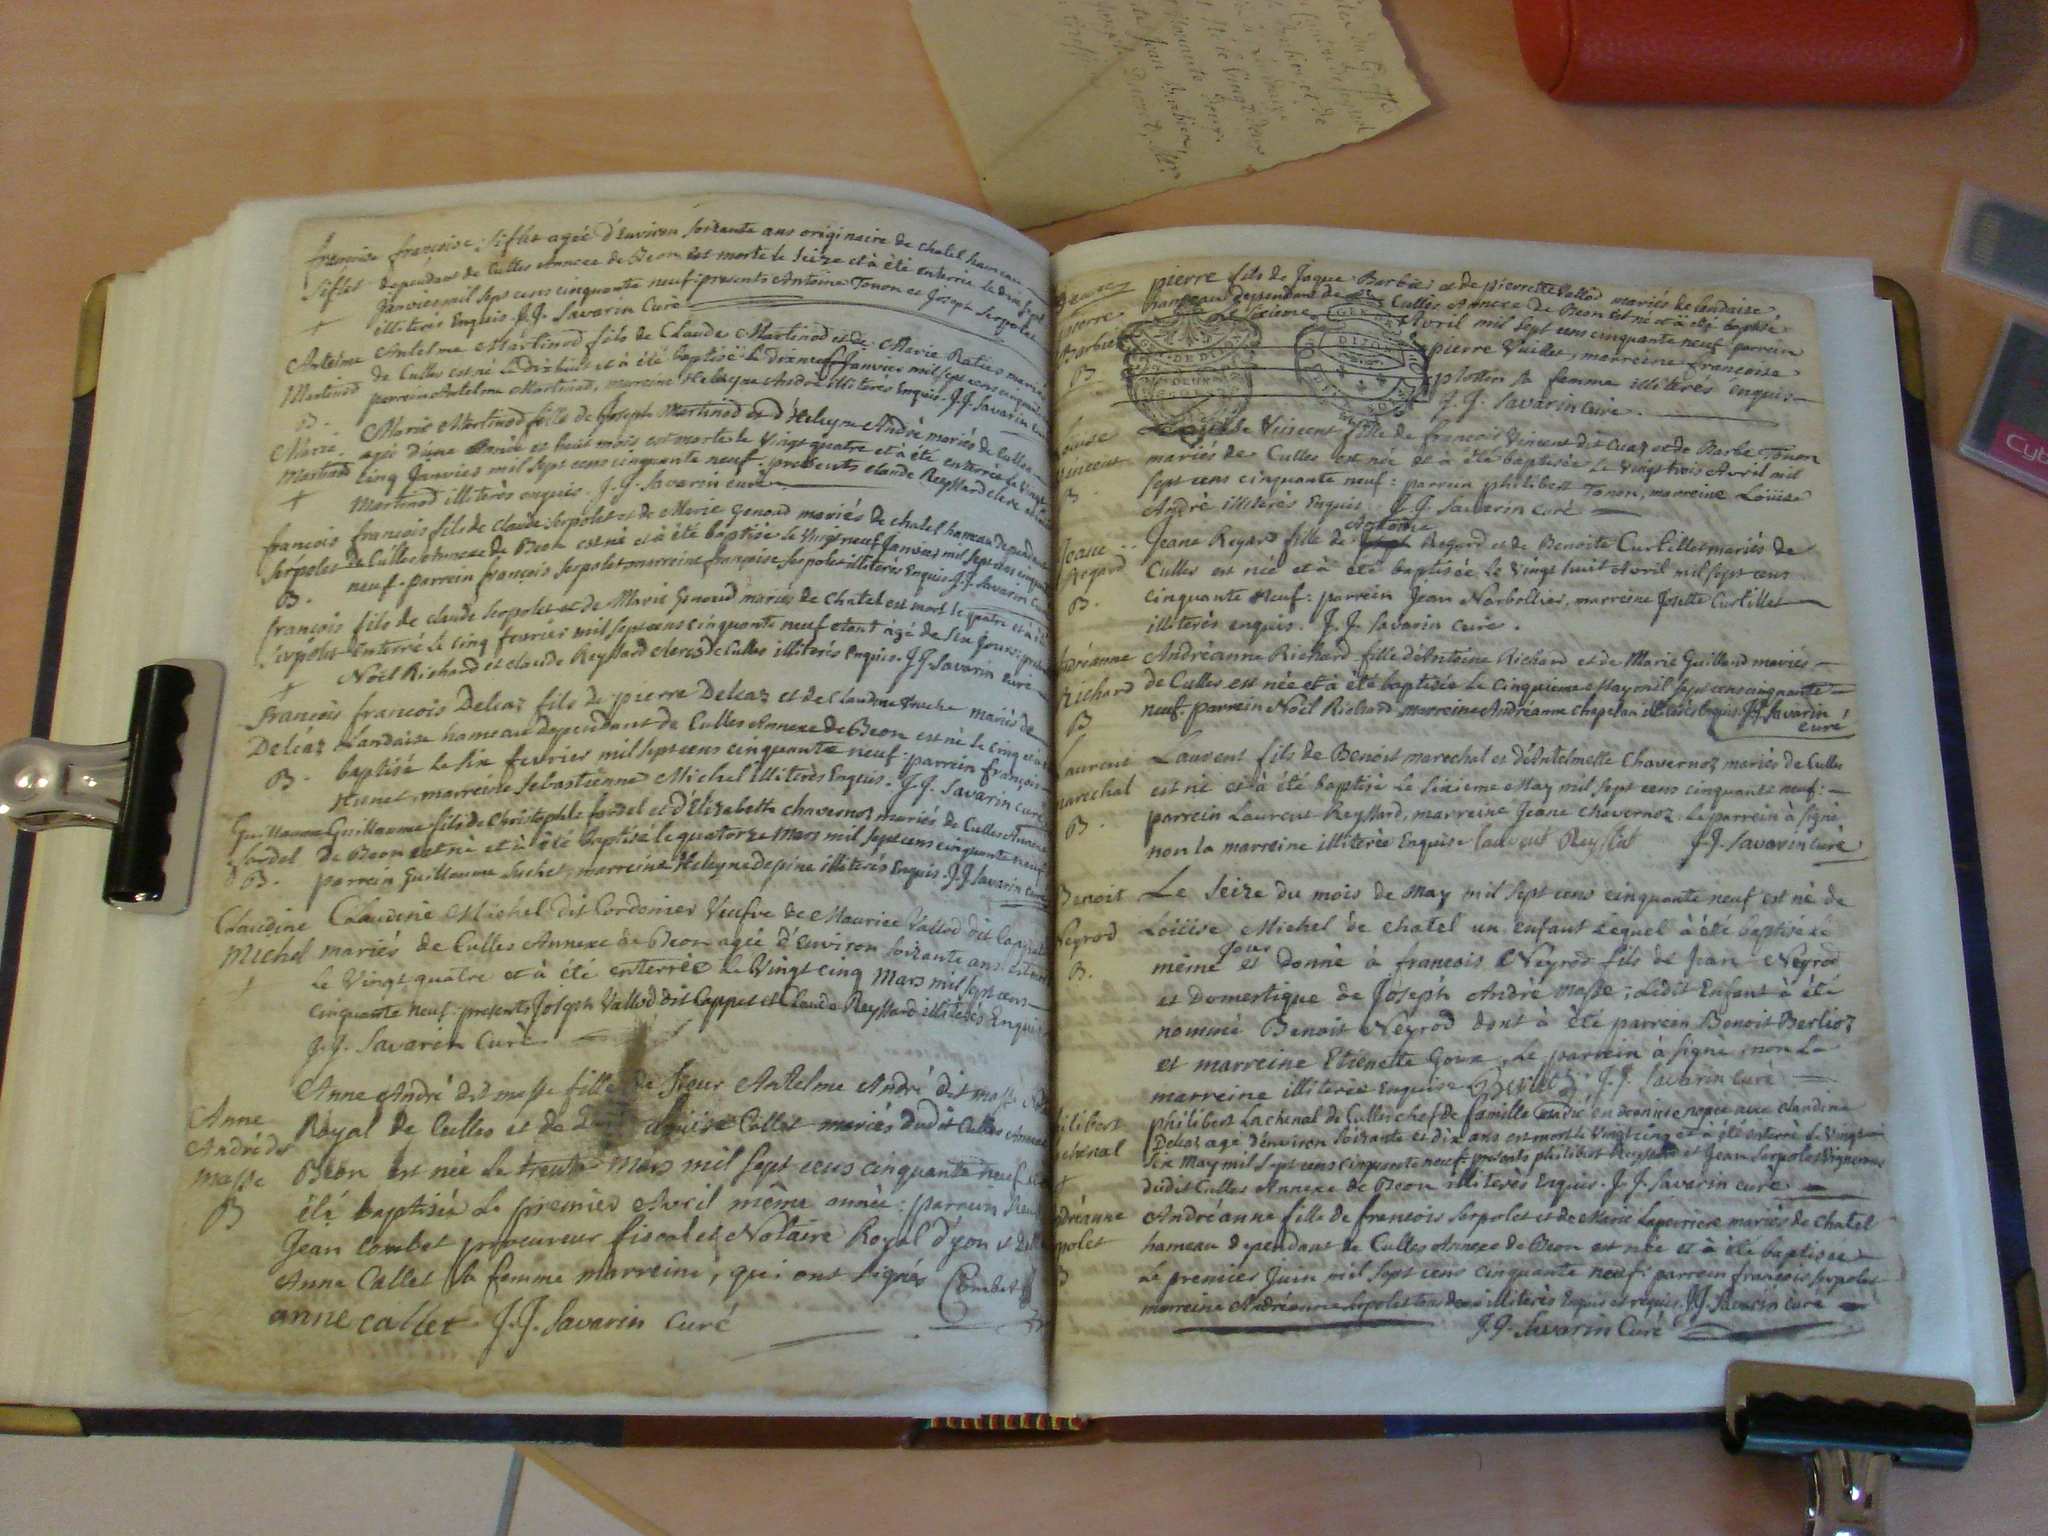 françoise françoise Siflet agée d'Environ soixante ans originaire de chatel hameau
Siflet dependant de Culles Annexe de Beon est morte le seize et à été enterrée le dix sept
Janvier mil sept cens cinquante neuf. presents Antoine Tonon et Joseph Serpolet
illiterés Enquis. J.J. Savarin Curé
Antelme Antelme Martinod fils de Claude Martinod et de Marie Ratier mariés
Martinod de Culles est né le dix huit et à été baptisé le dix neuf Janvier mil sept cens cinquante
B. parrein Antelme Martinod, marreine Heleyne André illiterés Enquis. J.J. Savarin Curé
Marie Marie Martinod fille de Joseph Martinod et d'Heleyne André mariés de Culles
Martinod agée d'une Année et huit mois est morte le Vingt quatre et à été enterrée le Vingt
† cinq Janvier mil sept cens cinquante neuf. presents claude Reyssard clerc
Martinod illiterés enquis. J.J. Savarin curé
françois françois fils de claude Serpolet et de Marie Genoud mariés de chatel hameau dependant
Serpolet de Culles Annexe de Beon est né et à été baptisé le Vingt neuf Janvier mil sept cens cinquante
B. neuf. parrein françois Serpolet marreine françoise Serpolet illiterés Enquis J.J. Savarin Curé
françois fils de claude Serpolet et de Marie Genoud mariés de chatel est mort le quatre et à été
Serpolet Enterré le cinq fevrier mil sept cens cinquante neuf etant agé de six jours: presents
† Noël Richard et claude Reyssard clerc de Culles illiterés Enquis. J.J. Savarin curé
François françois Delcaz fils de pierre Delcaz et de Claudine Suchet mariés de
Delcaz Landaise hameau dependant de Culles Annexe de Beon est né le cinq et à été
B. baptisé le six fevrier mil sept cens cinquante neuf. parrein françois
Hunet, marreine Sebastienne Michel illiterés Enquis. J.J. Savarin curé
Guillaume Guillaume fils de Christophle Sardel et d'Elizabeth chavernoz mariés de Culles Annexe
Sardel de Beon est né et à été baptisé le quatorze Mars mil sept cens cinquante neuf
B. parrein Guillaume Suchet, marreine Heleyne despine illiterés Enquis. J.J. Savarin curé
Claudine Claudine Michel dit Cordonier Veufve de Maurice Vallod dit
Michel mariés de Culles Annexe de Beon agée d'Environ soixante ans est morte
† le Vingt quatre et à été enterrée le Vingt cinq Mars mil sept cens
cinquante neuf. presents Joseph Vallod dit Cappet et Claude Reyssard illiterés Enquis
J.J. Savarin Curé
Anne André dit masse fille de Sieur Antelme André dit masse
Anne Royal de Culles et de Louise Callet mariés dudit Culles Annexe
André dit Beon est née le trente Mars mil sept cens cinquante neuf et à
masse été baptisée le premier Avril même année: parrein Sieur
B Jean Combet procureur fiscal et Notaire Royal d'yon et
Anne Callet sa femme marreine, qui ont signés Combet
anne callet J.J. Savarin Curé
pierre fils de Jaque Barbier et de pierrette Vallod mariés de landaise
pierre hameau dependant de Culles Annexe de Beon est né et à été baptisé
Barbier Le sixieme Avril mil sept cens cinquante neuf parrein
B pierre Vuillet, marreine françoise
plotton sa femme illiterés enquis
J.J. Savarin Curé.
GEN. DE DIJON
DEUX
DIJON
Louise Louise Vincent fille de françois Vincent dit Cuaz et de Barbe Tonon
Vincent mariés de Culles est née et à été baptisée le Vingt trois Avril mil
B. sept cens cinquante neuf: parrein philibert Tonon, marreine Loüise
André illiterés Enquis J.J. Savarin Curé
Antoine
Jeane Jeane Regard fille de Regard et de Benoite Curtillet mariés de
Regard Culles est née et à été baptisée le Vingt huit Avril mil sept cens
B. cinquante Neuf: parrein Jean Narbollier, marreine Josette Curtillet
illiterés enquis. J.J. Savarin Curé.
Andréanne Andréanne Richard fille d'Antoine Richard et de Marie Guilland mariés
Richard de Culles est née et à été baptisée le cinquieme May mil sept cens cinquante
B neuf. parrein Noël Richard, marreine Andréanne chapelan illiterés Enquis. J.J. Savarin
curé
Laurent Laurent fils de Benoit marechal et d'Antelmette Chavernoz mariés de Culles
marechal est né et à été baptisé le sixieme May mil sept cens cinquante neuf:
B. parrein Laurent Reyssard, marreine Jeane chavernoz, le parrein à signé
non la marreine illiterée Enquise laurent Reystat J.J. Savarin Curé
Benoit Le seize du mois de May mil sept cens cinquante neuf est né de
Neyrod Loüise Michel de chatel un enfant lequel à été baptisé le
B. même jour et donné à françois Neyrod fils de Jean Neyrod
et Domestique de Joseph André masse; Ledit Enfant à été
nommé Benoit Neyrod dont à été parrein Benoit Berlioz
et marreine Etienette Goux, Le parrein à signé, non la
marreine illiterée Enquise J.J. Savarin Curé
philibert philibert Lachenal de Culles chef de famille marié en derniere nopce avec claudine
Lachenal Delcaz agé d'environ soixante et dix ans est mort le Vingt cinq et à été enterré le Vingt
† six May mil sept cens cinquante neuf. presents philibert Reyssard et Jean Serpolet Vignerons
dudit Culles Annexe de Beon illiterés Enquis. J.J. Savarin curé
Andréanne Andréanne fille de françois Serpolet et de Marie Laperriere mariés de chatel
Serpolet hameau dependant de Culles Annexe de Beon est née et à été baptisée
B Le premier Juin mil sept cens cinquante neuf: parrein françois Serpolet
marreine Andréanne Serpolet tous deux illiterés Enquis et requis. J.J. Savarin curé
J.J. Savarin Curé
Cyb